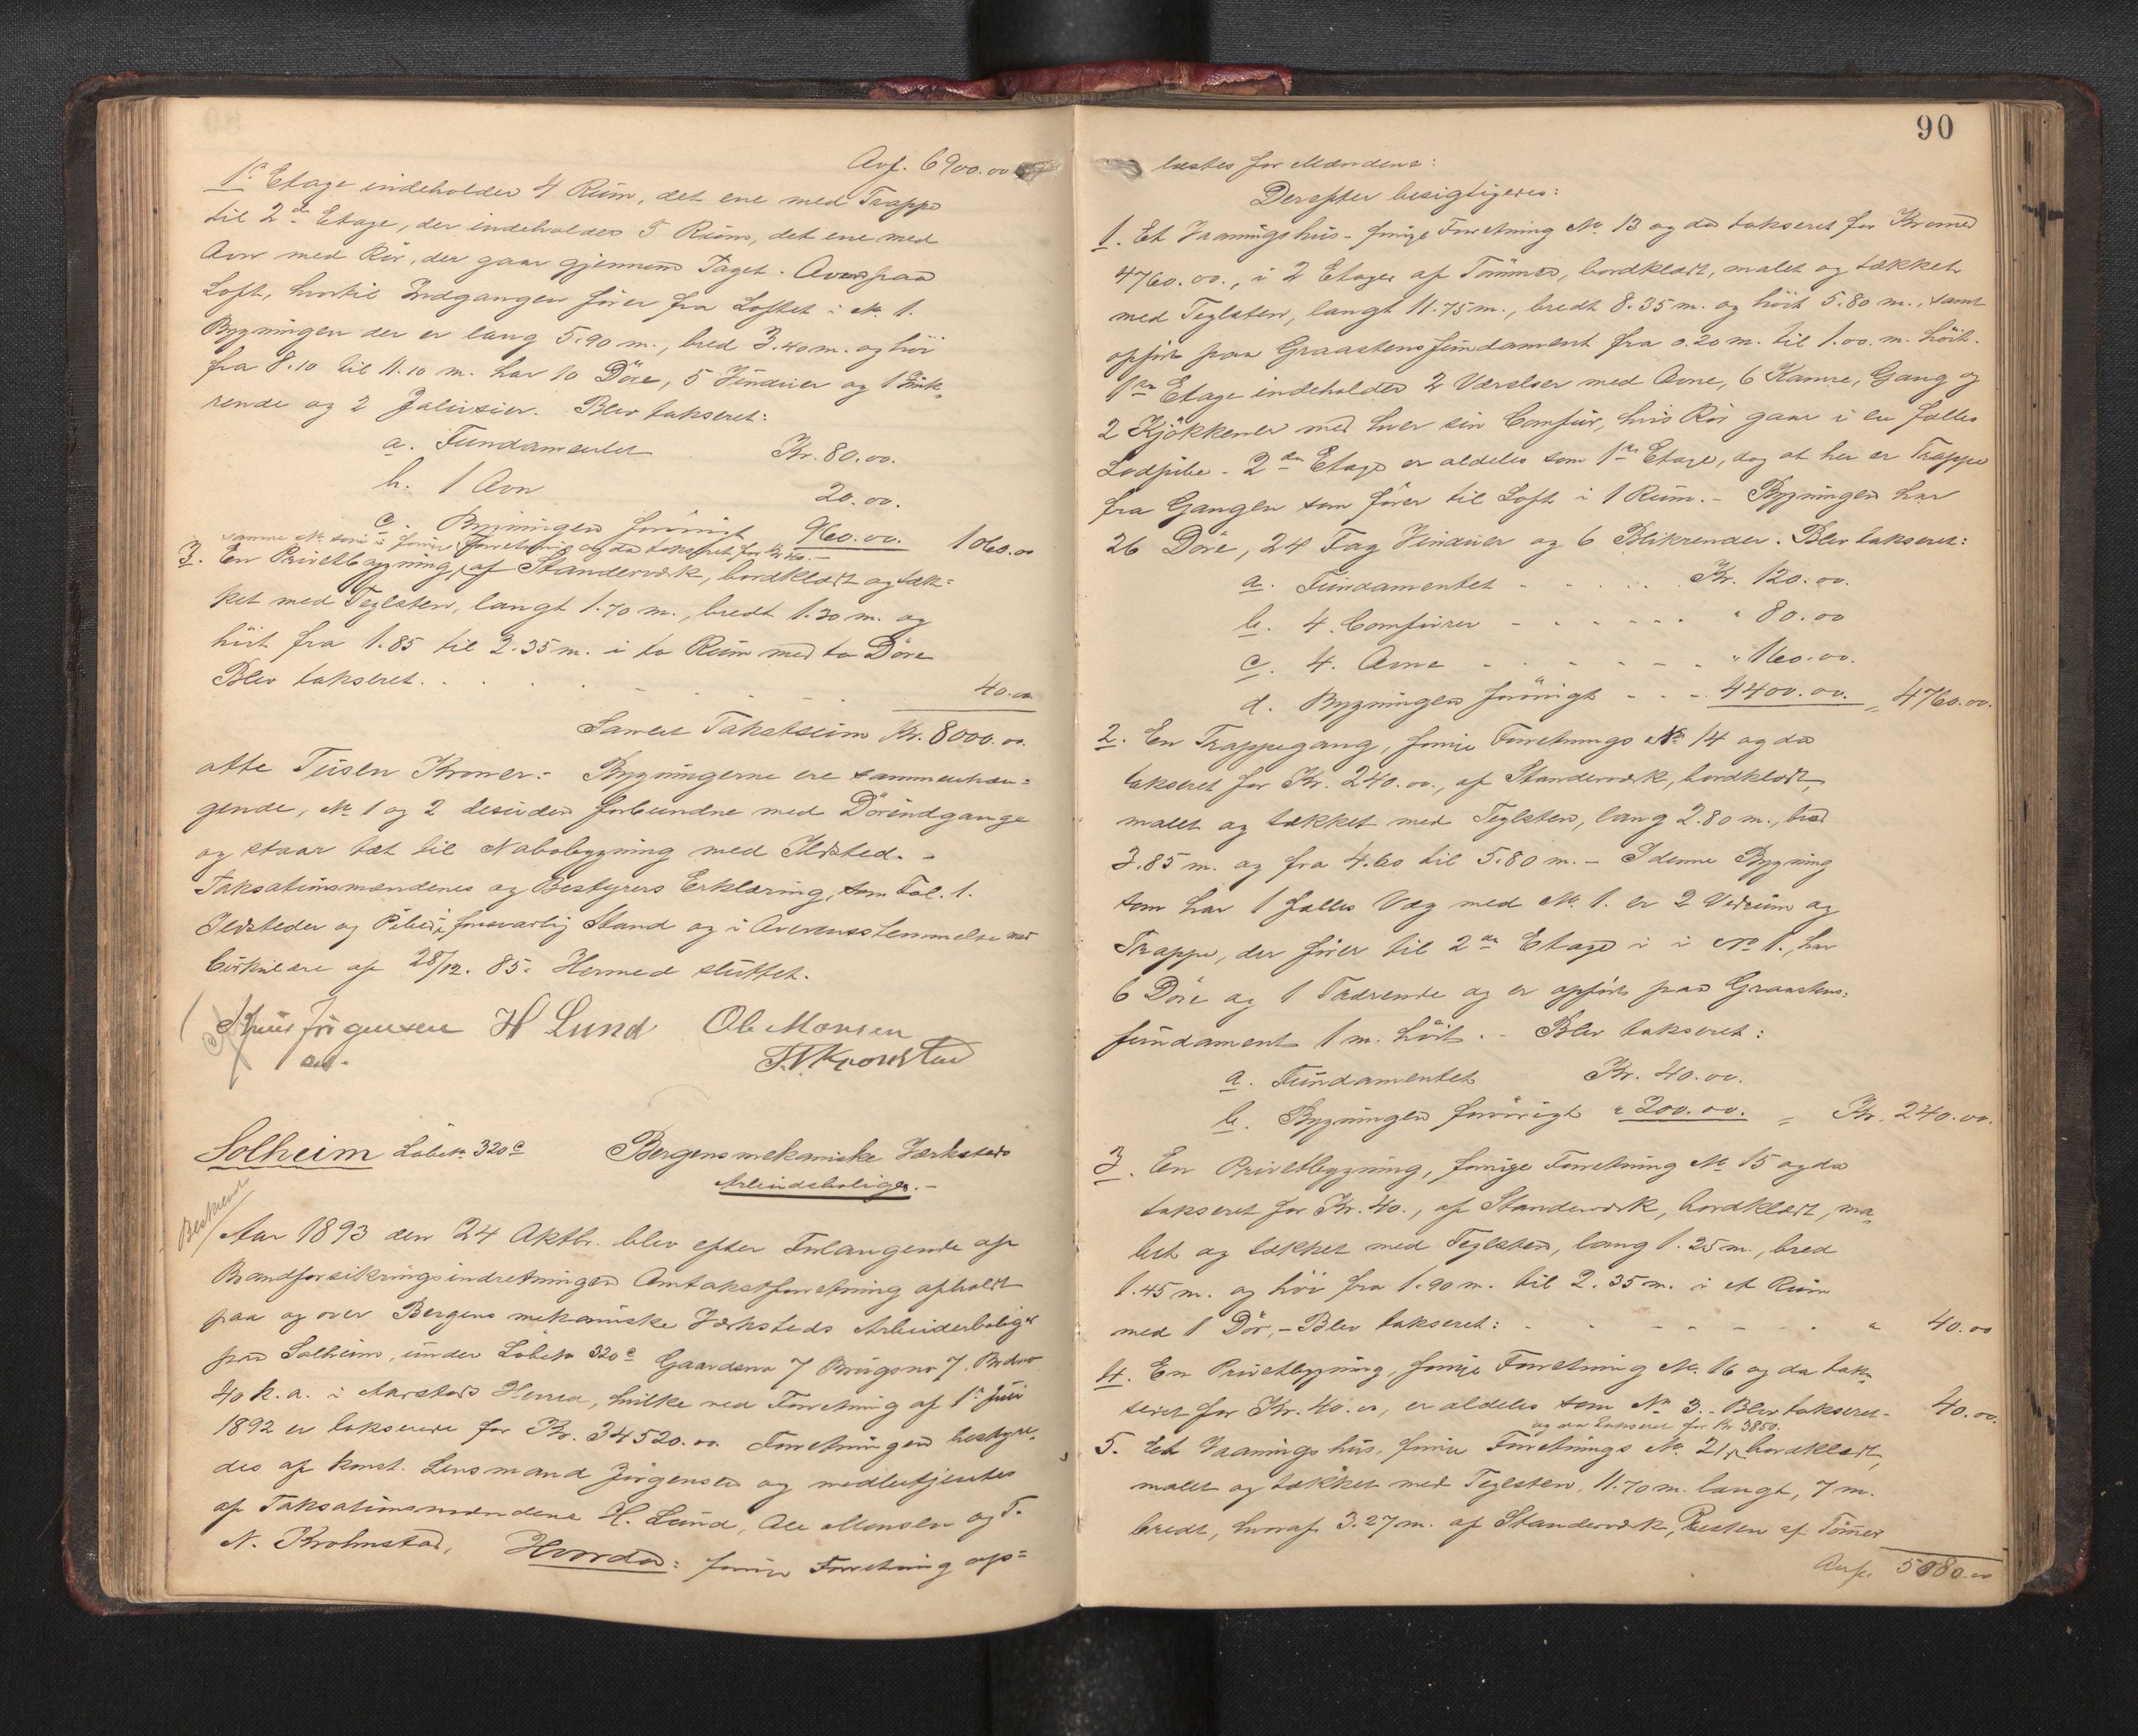 Ovf. 6900.00
1ste Etage indeholder 4 Rum, det ene med Trappe
til 2den Etage, der indeholder 5 Rum, det ene med
Ovn med Rör, der gaar gjennem Taget. Ovenpaa
Loft, hvortil Indgangen förer fra Loftet i No 1.
Bygningen der er lang 5.90 m., bred 3.40 m. og höi
fra 8.10 til 11.10 m. har 10 Döre, 5 Vinduer og 1
rende og 2 Jalusier. Blev takseret:
a. Fundamentet Kr. 80.00.
b. 1 Ovn 20.00.
c. Bygningen forövrigt 960.00. 1060.00
samme No som i forrige Forretning og da takseret for Kr 40.–
3. En Privetbygning, af Standerværk, bordklædt og tæk=
ket med Teglsten, langt 1.70 m., bredt 1.30 m. og
höit fra 1.85 til 2.35 m. i to Rum med to Döre
Blev takseret. . . . . 40.00
Samlet Takstsum Kr. 8000.00.
otte Tusen Kroner: Bygningerne ere sammenhæn=
gende, No 1 og 2 desuden forbundne med Dörindgange
og staar tæt til Nabobygning med Ildsted. –
Taksationsmændenes og Bestyrers Erklæring, som Fol. 1.
Ildsteder og Piber i forsvarlig Stand og i Overensstemmelse med
Cirkulære af 28/12. 85. Hermed sluttet.
Jörgensen H Lund Ole Monsen
T. N Kronstad
Solheim Löbeno 320c Bergens mekaniske Værksteds
Arbeiderboliger. –
Beskrevet
Aar 1893 den 24 Oktbr. blev efter Forlangende af
Brandforsikringsindretningen Omtakstforretning afholdt
paa og over Bergens mekaniske Værksteds Arbeiderboliger
paa Solheim, under Löbeno 320c Gaardsno 7 Brugsno 7. Brdno
40 h. a. i Aarstads Herred, hvilke ved Forretning af 1ste Juni
1892 er takserede for Kr. 34520.00. Forretningen bestyre-
des af konst. Lensmand Jörgensen og medbetjentes
af Taksationsmændene H. Lund, Ole Monsen og T.
N. Krohnstad, Hvorda: forrige Forretning op=
90
læstes for Mændene:
Derefter besigtigedes:
1. Et Vaaningshus – forrige Forretning No 13 og da takseret for Kroner
4760.00., i 2 Etager af Tömmer, bordklædt, malet og tækket
med Teglsten, langt 11.75 m., bredt 8.35 m. og höit 5.80 m., samt
opfört paa Graastensfundament fra 0.20 m. til 1.00. m. höit.
1ste Etage indeholder 2 Værelser med Ovne, 6 Kamre, Gang og
2 Kjökkener med hver sin Comfur, hvis Rör gaar i en fælles
Lodpibe – 2den Etage er aldeles som 1ste Etage, dog at her er Trappe
fra Gangen som förer til Loft i 1 Rum. – Bygningen har
26 Döre, 24 Fag Vinduer og 6 Blikrender. Blev takseret:
a. Fundamentet - - . . . Kr. 120.00.
b. 4. Comfurer - - - - - - " 80.00
c. 4. Ovne - - - - - - " 160.00.
d. Bygningen forövrigt - - - 4400.00. = 4760.00.
2. En Trappegang, forrige Forretnings No 14 og da
takseret for Kr. 240.00., af Standerværk, bordklædt,
malet og tækket med Teglsten, lang 2.80 m., bred
3.85 m. og fra 4.60 til 5.80 m. – I denne Bygning
som har 1 fælles Væg med No 1. er 2 Vedrum og
Trappe, der förer til 2den Etage i i No 1., har
6 Döre og 1 Tædrende og er opfört paa Graastens=
fundament 1 m. höit. – Blev takseret:
a. Fundamentet Kr. 40.00.
b. Bygningen forövrigt " 200.00. = Kr. 240.00.
3. En Privetbygning, forrige Forretning No 15 og da
takseret for Kr. 40., af Standerværk, bordklædt, ma-
let og tækket med Teglsten, lang 1.25 m., bred
1.45 m. og höi fra 1.90 m. til 2.35 m. i et Rum
med 1 Dör, – Blev takseret: - - - - - - " 40.00
4. En Privetbygning, forrige Forretning No 16 og da tak-
seret for Kr. 40.00, er aldeles som No 3. – Blev takseret – 40.00.
og da takseret for Kr 3850.
5. Et Vaaningshus, forrige Forretnings No 21, bordklædt,
malet og tækket med Teglsten, 11.70 m. langt, 7 m.
bredt, hvoraf 3.27 m. af Standerværk, Resten af Tömmer
Ovf. 5080.00